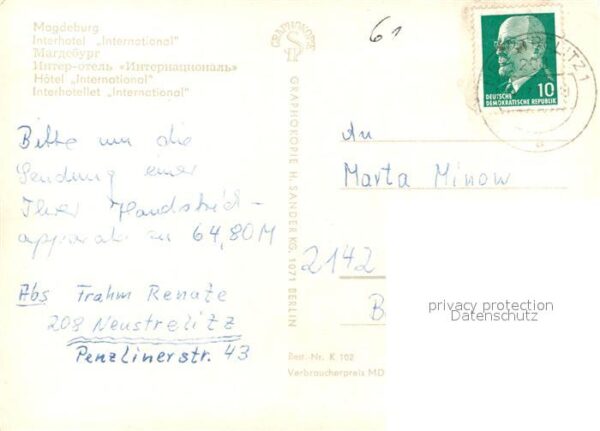 Magdeburg
Interhotel „International"
Магдебург
Интер-отель «Интернациональ»
Hôtel „International"
Interhotellet „International"
Bitte um die
Sendung einer
Ihrer Handstrick-
apparate zu 64,80 M
Abs Frahm Renate
208 Neustrelitz
Penzlinerstr. 43
GRAPHOKOPIE
GRAPHOKOPIE H. SANDER KG, 1071 BERLIN
61
10
DEUTSCHE
DEMOKRATISCHE REPUBLIK
An
Marta Minow
2142
B
privacy protection
Datenschutz
Best.-Nr. K 102
Verbraucherpreis MD